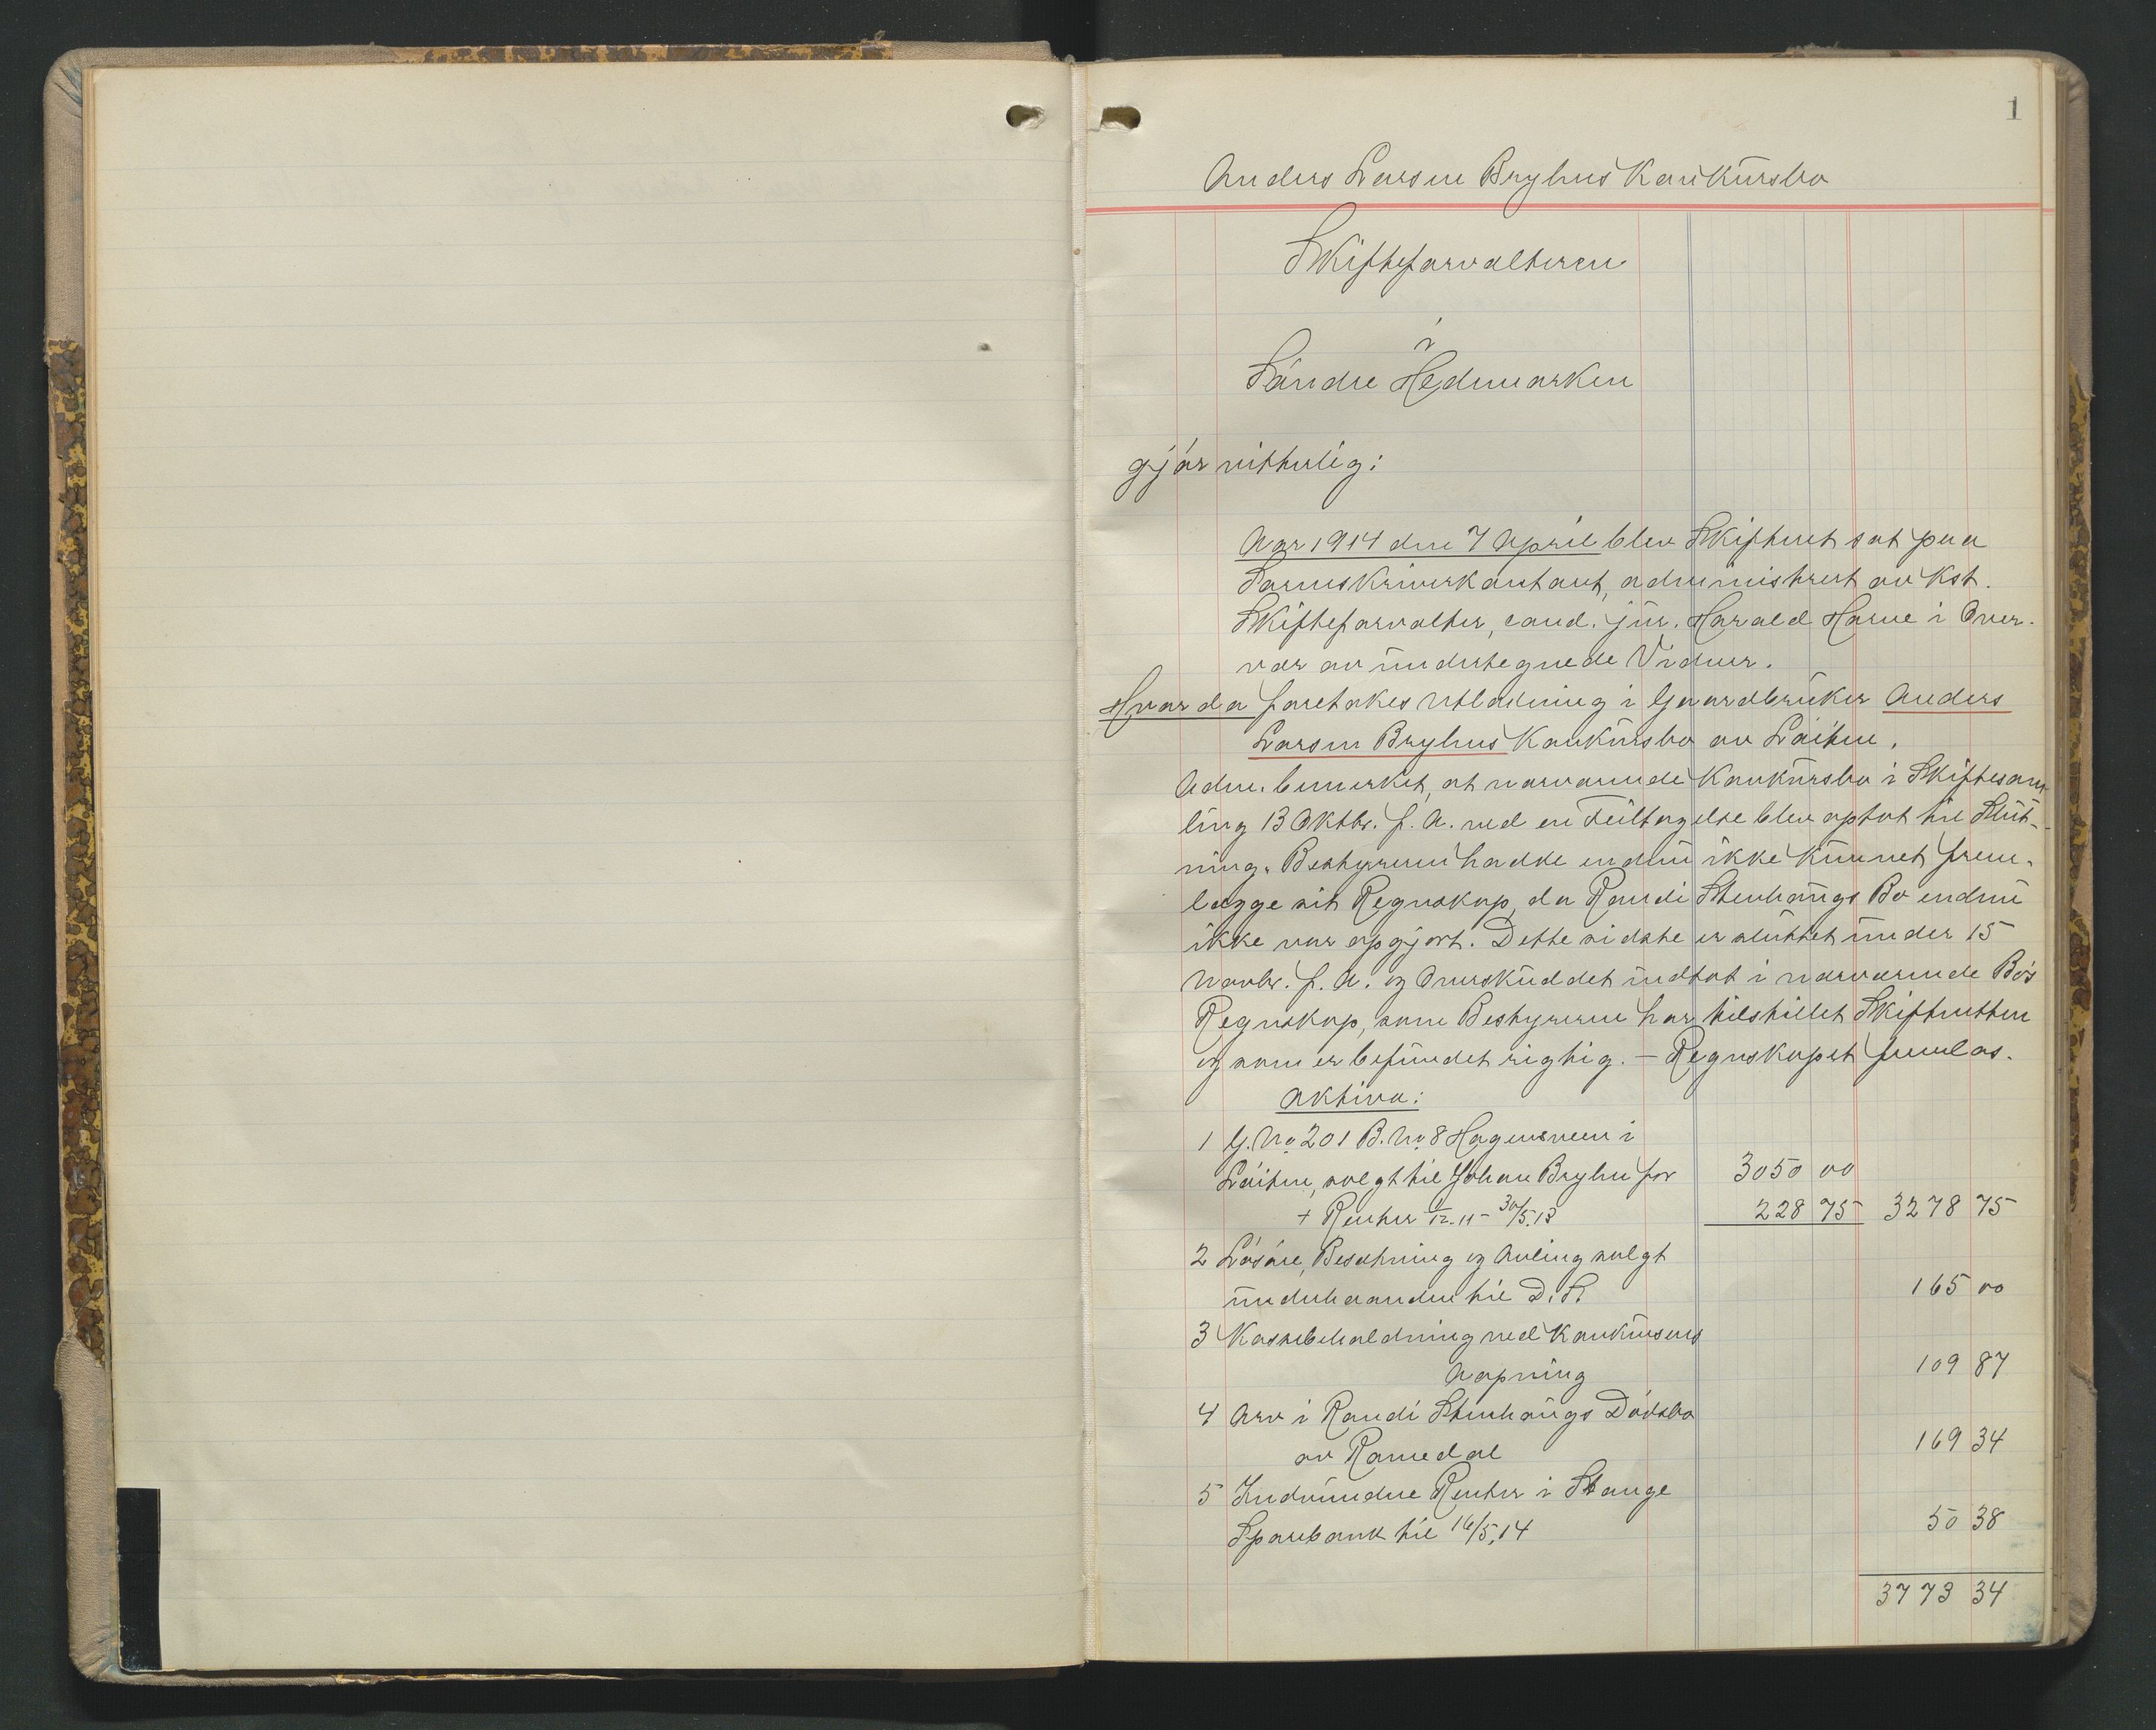 1
Anders Larsen Bryhns Konkursbo
Skifteforvalteren
i
Søndre Hedemarken
gjør vitterlig:
Aar 1914 den 7 April blev Skifteret sat paa
Sorenskriverkontoret, administrert av Kst.
Skifteforvalter, cand. jur. Harald Horne i Over-
vær av undertegnede Vidner.
Hvorda foretokes Utlodning i Gaardbruker Anders
Larsen Bryhns Konkursbo av Løiten.
Adm. bemerket, at nærværende Konkursbo i Skiftesam
ling 13 Oktbr. f. A. ved en Feiltagelse blev optat til Slut-
ning. Bestyreren hadde endnu ikke kunnet frem-
lægge sit Regnskap, da Randi Stenhaugs Bo endnu
ikke var opgjort. Dette sidste er sluttet under 15
Novbr. f. A. og Overskuddet indtat i nærværende Bo's
Regnskap, som Bestyreren har tilstillet Skifteretten
og som er befundet rigtig. – Regnskapet fremlas.
Aktiva:
1 G. No 201 B. No 8 Hagensveen i
Løiten, solgt til Johan Bryhn for 3050 00
+ Renter 12.11 - 30/5.13 228 75 3278 75
2 Løsøre, Besætning og Avling solgt
underhaanden til D. S. 165 00
3 Kassebeholdning ved Konkursens
Aapning 109 87
4 Arv i Randi Stenhaugs Dødsbo
av Romedal 169 34
5 Indvundne Renter i Stange
Sparebank til 16/5.14 50 38
3773 34